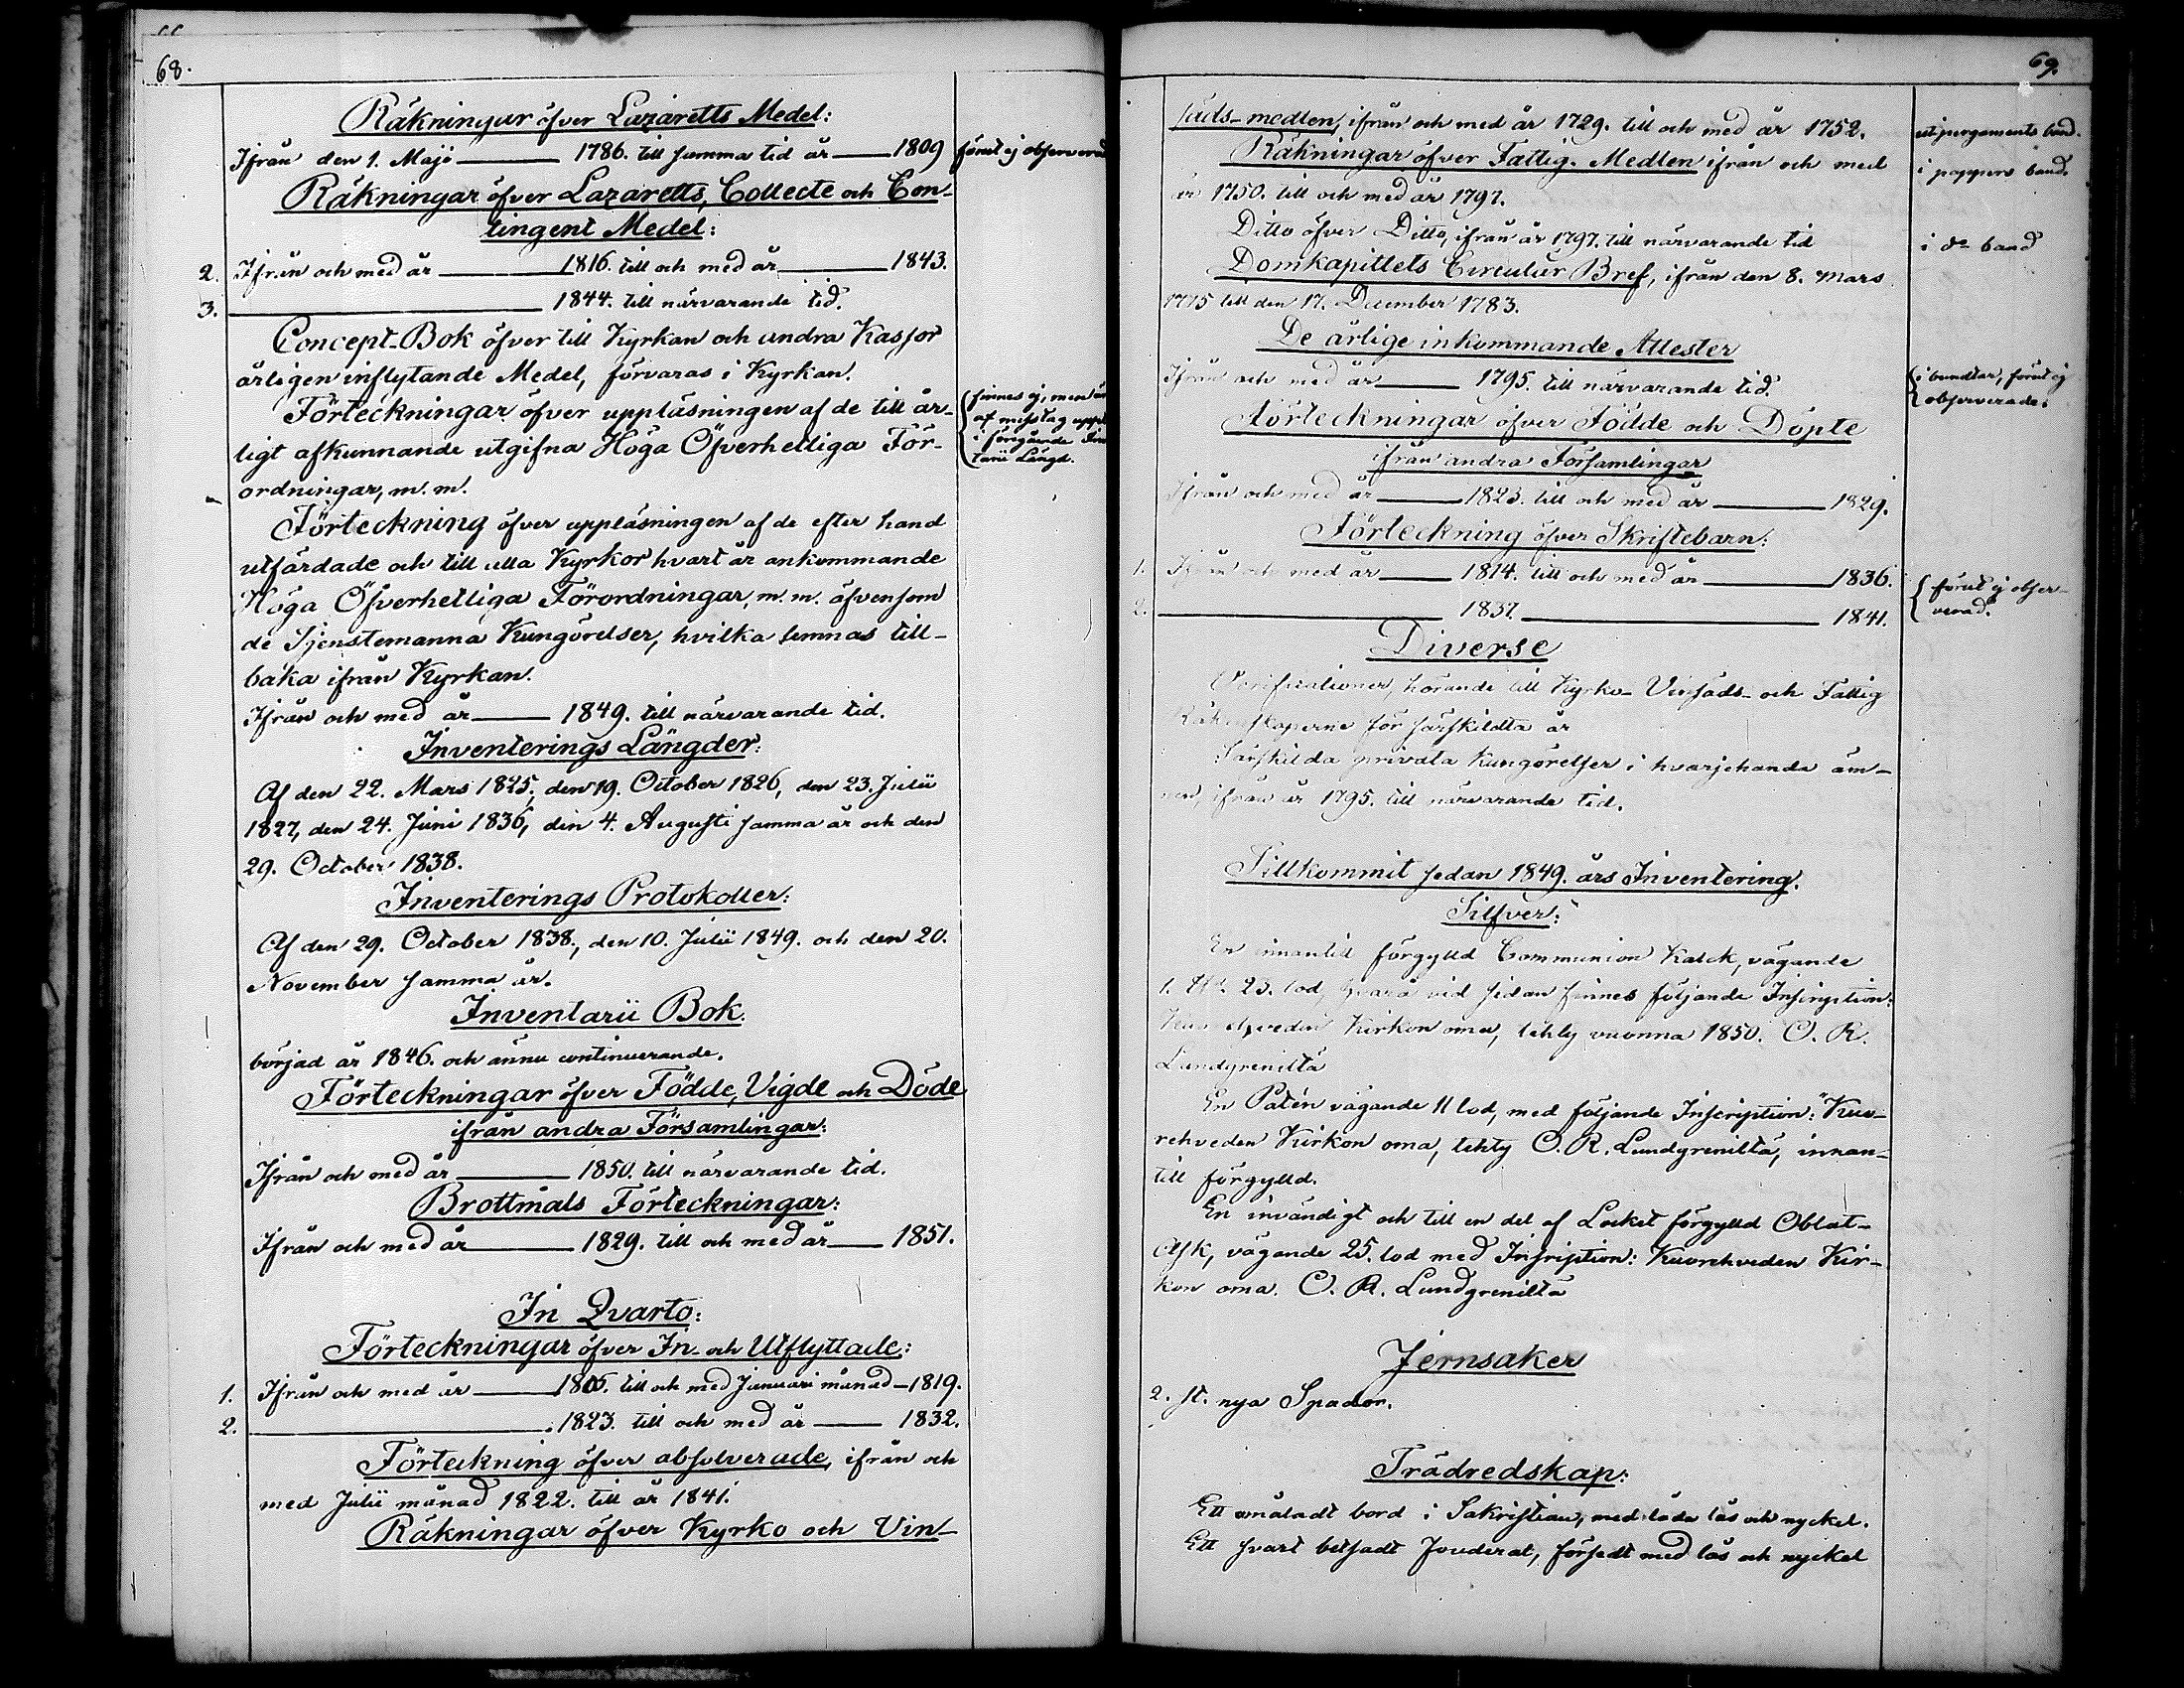 68.
Räkningar öfver Lazaretts Medel:
Ifrån den 1. Maji 1786. till samma tid år 1809 förut ej observerad
Räkningar öfver Lazaretts, Collecte och Con-
tingent Medel:
2. Ifrån och med år 1816. till och med år 1843.
3. 1844. till närvarande tid.
Concept-Bok öfver till Kyrkan och andra Kassor
årligen inflytande Medel, förvaras i Kyrkan.
Förteckningar öfver uppläsningen af de till år-
ligt afkunnande utgifna Höga Öfverhetliga För-
ordningar, m. m.
finnes ej, men är
af misstag
i föregående
tarii Längd.
Förteckning öfver uppläsningen af de efter hand
utfärdade och till alla Kyrkor hvart år ankommande
Höga Öfverhetliga Förordningar, m. m. äfvensom
de Tjenstemanna Kungörelser, hvilka lemnas till-
baka ifrån Kyrkan.
Ifrån och med år 1849. till närvarande tid.
Inventerings Längder:
Af den 22. Mars 1825, den 19. October 1826, den 23. Julii
1827, den 24. Juni 1836, den 4. Augusti samma år och den
29. October 1838.
Inventerings Protokoller:
Af den 29. October 1838., den 10. Julii 1849. och den 20.
November samma år.
Inventarii Bok.
börjad år 1846. och ännu continuerande.
Förteckningar öfver Födde, Vigde och Döde
ifrån andra Församlingar:
Ifrån och med år 1850. till närvarande tid.
Brottmåls Förteckningar:
Ifrån och med år 1829. till och med år 1851.
In Qvarto:
Förteckningar öfver In- och Utflyttade:
1. Ifrån och med år till och med Januari månad 1819.
2. 1823. till och med år 1832.
Förteckning öfver absolverade, ifrån och
med Julii månad 1822. till år 1841.
Räkningar öfver Kyrko och Vin-
69.
säds-medlen, ifrån och med år 1729. till och med år 1752. uti pergaments band.
Räkningar öfver Fattig-Medlen ifrån och med i pappers band.
år 1750. till och med år 1797.
Ditto öfver Ditto, ifrån år 1797. till närvarande tid i do band
Domkapitlets Circulär Bref, ifrån den 8. Mars
1775 till den 17. December 1783.
De årlige inkommande Attester
Ifrån och med år 1795. till närvarande tid. i bundtar, förut ej
observerade.
Förteckningar öfver Födde och Döpte
ifrån andra Församlingar
Ifrån och med år 1823. till och med år 1829.
Förteckning öfver Skriftebarn:
1. Ifrån och med år 1814. till och med år 1836.
2. 1837. 1841.
förut ej obser-
verad.
Diverse
Verificationer, hörande till Kyrko- Vinsäds- och Fattig
Räkenskaperne för särskildta år
Särskilda privata Kungörelser i hvarjehanda äm-
nen, ifrån år 1795. till närvarande tid.
Tillkommit sedan 1849. års Inventering.
Silfver:
En innantill förgylld Communion Kalck, vägande
1. 23. lod, hvarå vid sidan finnes följande Inscription:
Kirkon oma, tehty vuonna 1850. O. R.
Lundgreniltä
En Patén vägande 11 lod, med följande Inscription: "Kuo-
rehveden Kirkon oma, tehty O. R. Lundgreniltä, innan-
till förgylld.
En invändigt och till en del af Locket förgylld Oblat-
Ask, vägande 25. lod med Inscription: Kuorehveden Kir-
kon oma. O. R. Lundgreniltä
Jernsaker
2. st. nya Spador.
Trädredskap:
Ett omåladt bord i Sakristian, med låda lås och nyckel.
Ett svart betsadt Fouderal, försedt med lås och nyckel